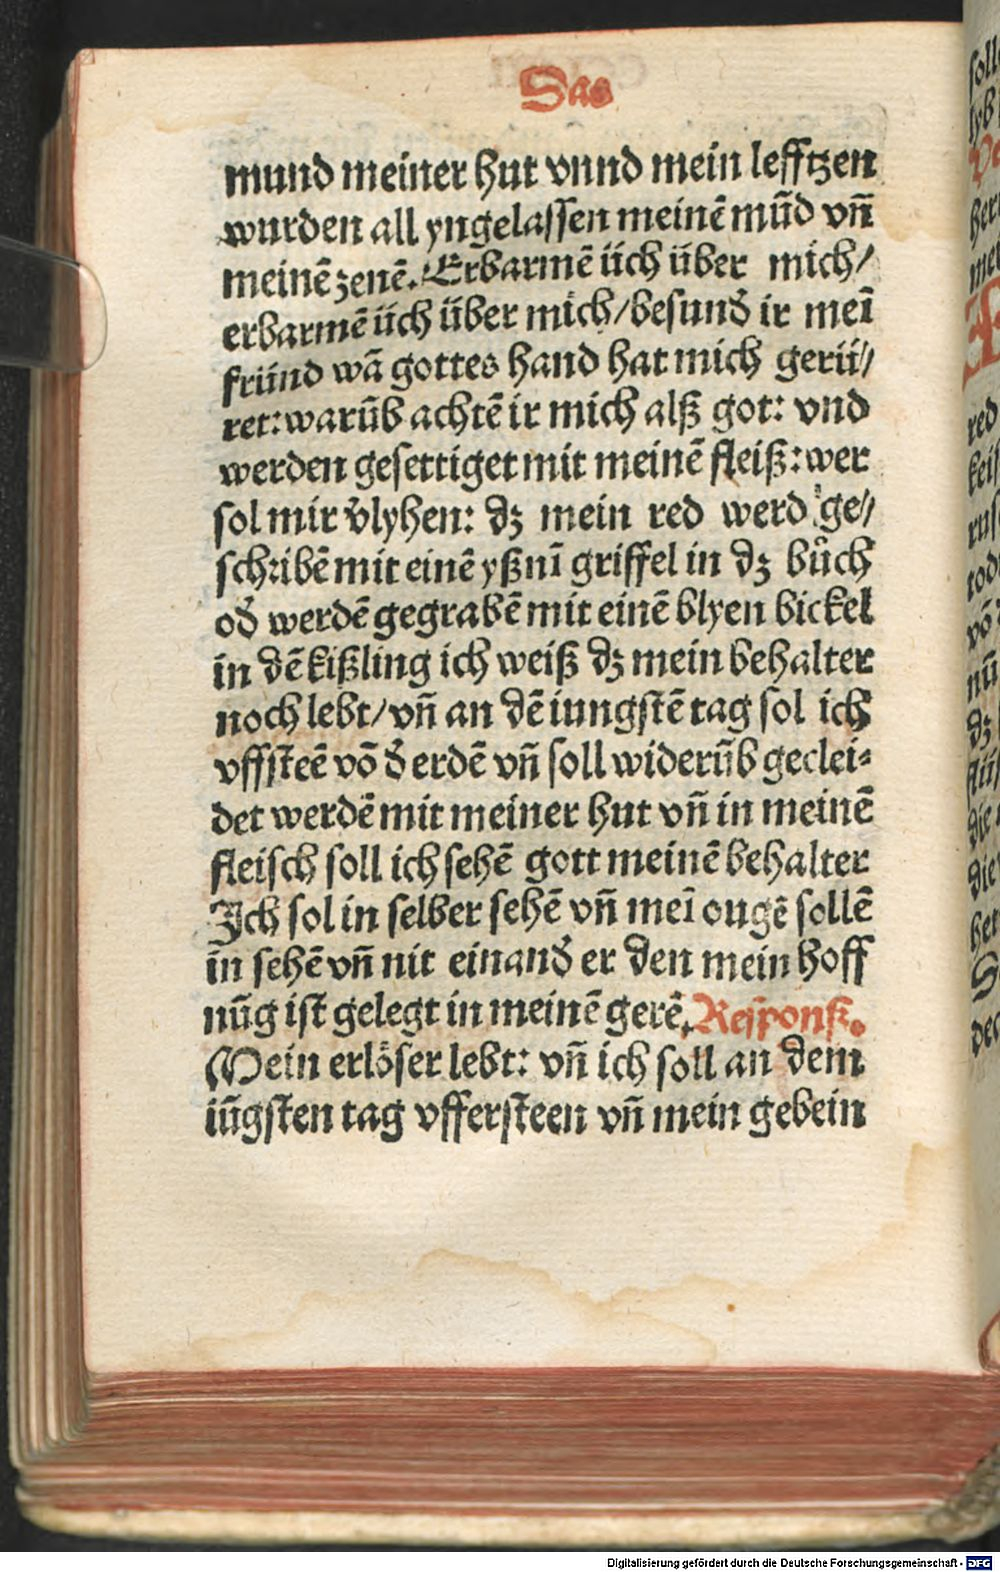 Das
mund meiner hut vnnd mein lefftzen
wurden all yngelassen meinē mūd vn̄
meinē zenē. Erbarmē üch über mich/
erbarmē üch über mich/besund̕ ir meī
fründ wā gottes hand hat mich gerü//
ret: warūb achtē ir mich alß got: vnd
werden gesettiget mit meinē fleiß: wer
sol mir v̕lyhen: dz mein red werd ge//
schribē mit einē yßnī griffel in dz bůch
od̕ werdē gegrabē mit einē blyen bickel
in dē kißling ich weiß dz mein behalter
noch lebt/vn̄ an dē iungstē tag sol ich
vffsteē vō d̕ erdē vn̄ soll widerūb geclei⸗
det werdē mit meiner hut vn̄ in meinē
fleisch soll ich sehē gott meinē behalter
Ich sol in selber sehē vn̄ meī ougē sollē
in sehē vn̄ nit einand̕ er den mein hoff
nūg ist gelegt in meinē gerē. Responß.
Mein erlöser lebt: vn̄ ich soll an dem
iūgsten tag vffersteen vn̄ mein gebein
Digitalisierung gefördert durch die Deutsche Forschungsgemeinschaft - DFG